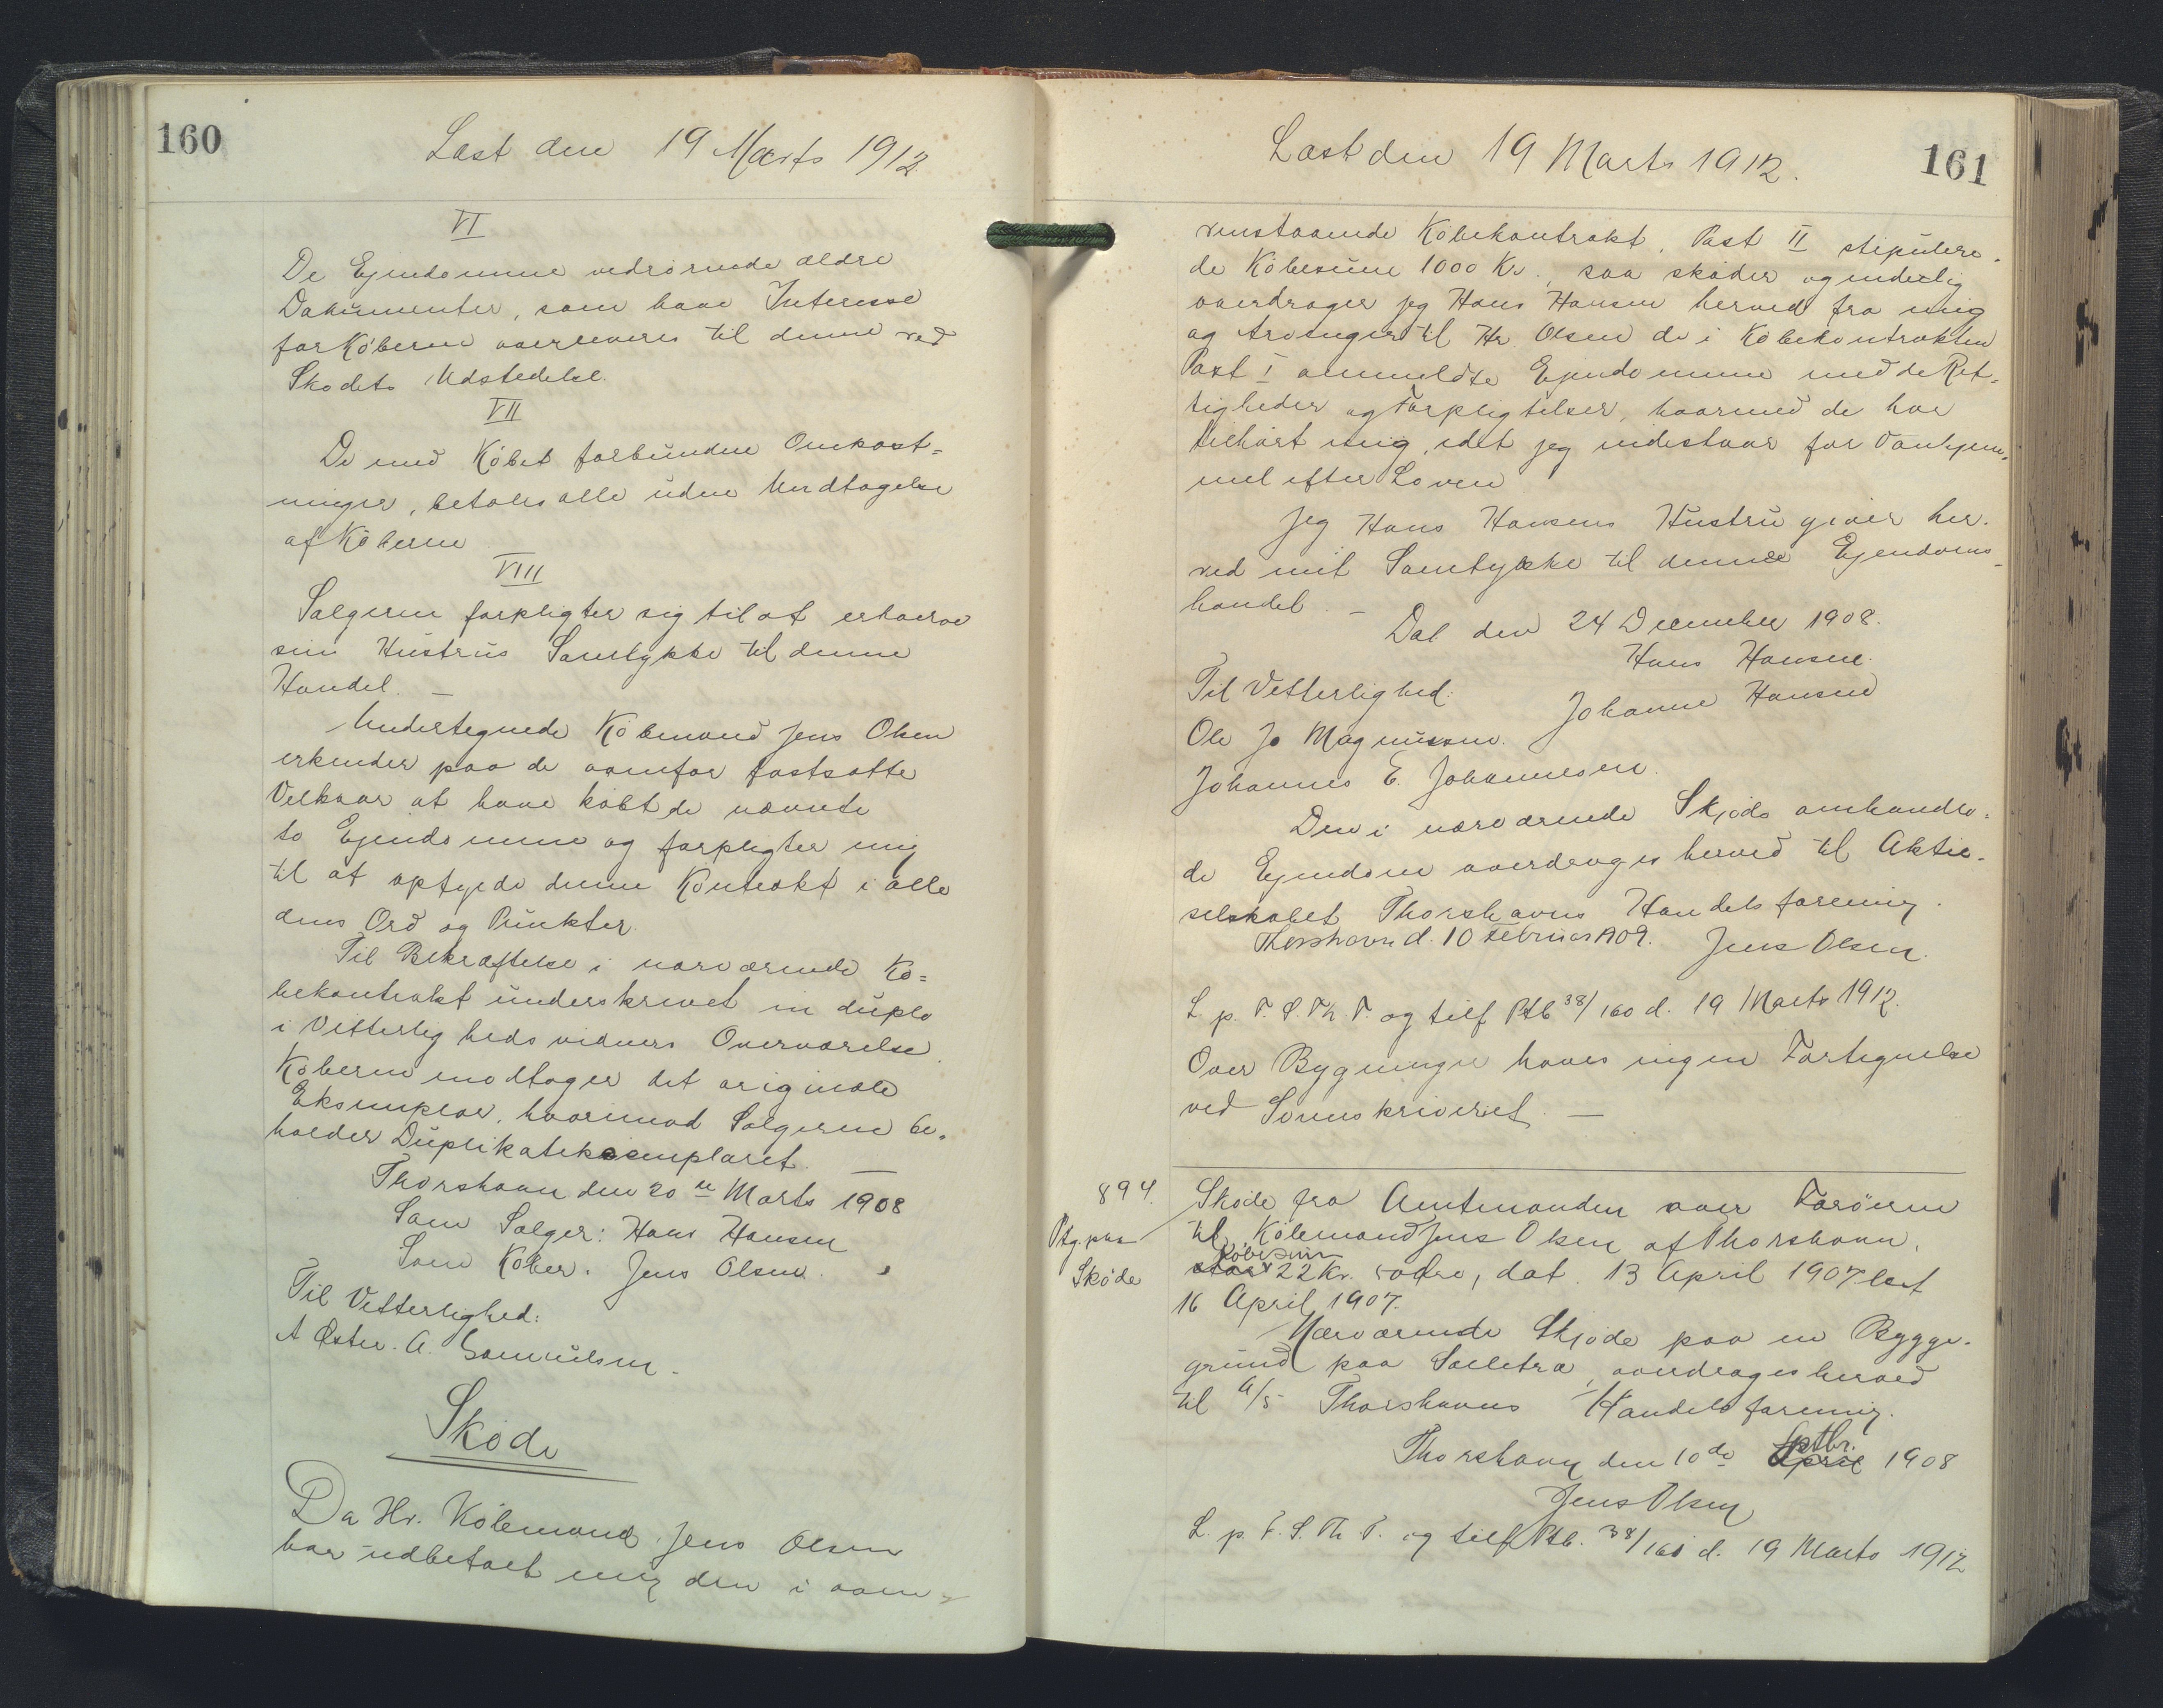 160
Læst den 19 Marts 1912
VI
De Ejendomme vedrørende ældre
Dokumenter, som have Interesse
for Køberen overleveres til denne ved
Skødets Udstedelse.
VII
De med Købet forbundne Omkost=
ninger, betales alle uden Undtagelse
af Køberen
VIII
Sælgeren forpligter sig til at erhverve
sin Hustrus Samtykke til denne
Handel. —
Undertegnede Købmand Jens Olsen
erkender paa de ovenfor fastsatte
Vilkaar at have købt de nævnte
to Ejendomme og forpligter mig
til at opfylde denne Kontrakt i alle
dens Ord og Punkter.
Til Bekræftelse i nærværende Kø=
bekontrakt underskrevet in duplo
i Vitterlighedsvidners Overværelse.
Køberen modtager det originale
Eksemplar, hvorimod Sælgeren be-
holder Duplikateksemplaret. —
Thorshavn den 20de Marts 1908
Som Sælger: Hans Hansen
Som Køber: Jens Olsen.
Til Vitterlighed:
A. Samuelsen.
Skøde
Da Hr. Købmand Jens Olsen
har udbetalt mig den i oven-
161
Læst den 19 Marts 1912.
venstaaende Købekontrakt, Post II stipulere-
de Købesum 1000 Kr., saa skøder og endelig
overdrager jeg Hans Hansen herved fra mig
og Arvinger til Hr. Olsen de i Købekontrakten
Post I ommeldte Ejendomme med de Ret-
tigheder og Forpligtelser, hvormed de har
tilhørt mig, idet jeg indestaar for Vanhjem-
mel efter Loven
Jeg Hans Hansens Hustru giver her-
ved mit Samtykke til denne Ejendoms-
handel. —
Dal den 24 December 1908.
Hans Hansen.
Til Vitterlighed:
Johanne Hansen
Ole Jo Magnussen.
Johannes E. Johannesen.
Den i nærværende Skjøde omhandle-
de Ejendom overdrages herved til Aktie-
selskabet Thorshavns Handelsforening.
Thorshavn d. 10 Februar 1909. Jens Olsen.
L. p. F. S. Th. T. og tilf Ptb 38/160 d. 19 Marts 1912.
Over Bygninger haves ingen Fortegnelse
ved Sorenskriveriet. —
894.
Skøde fra Amtmanden over Færøerne
Ptg. paa
til Købmand Jens Olsen af Thorshavn,
Købesum
Skøde
22 Kr. 50 Øre, dat. 13 April 1907 læst
16 April 1907.
Nærværende Skjøde paa en Bygge-
grund paa overdrages herved
til A/S Thorshavns Handelsforening.
Thorshavn den 10de Sptbr. 1908
Jens Olsen
L. p. F. S. Th. T. og tilf Ptb. 38/161 d. 19 Marts 1912